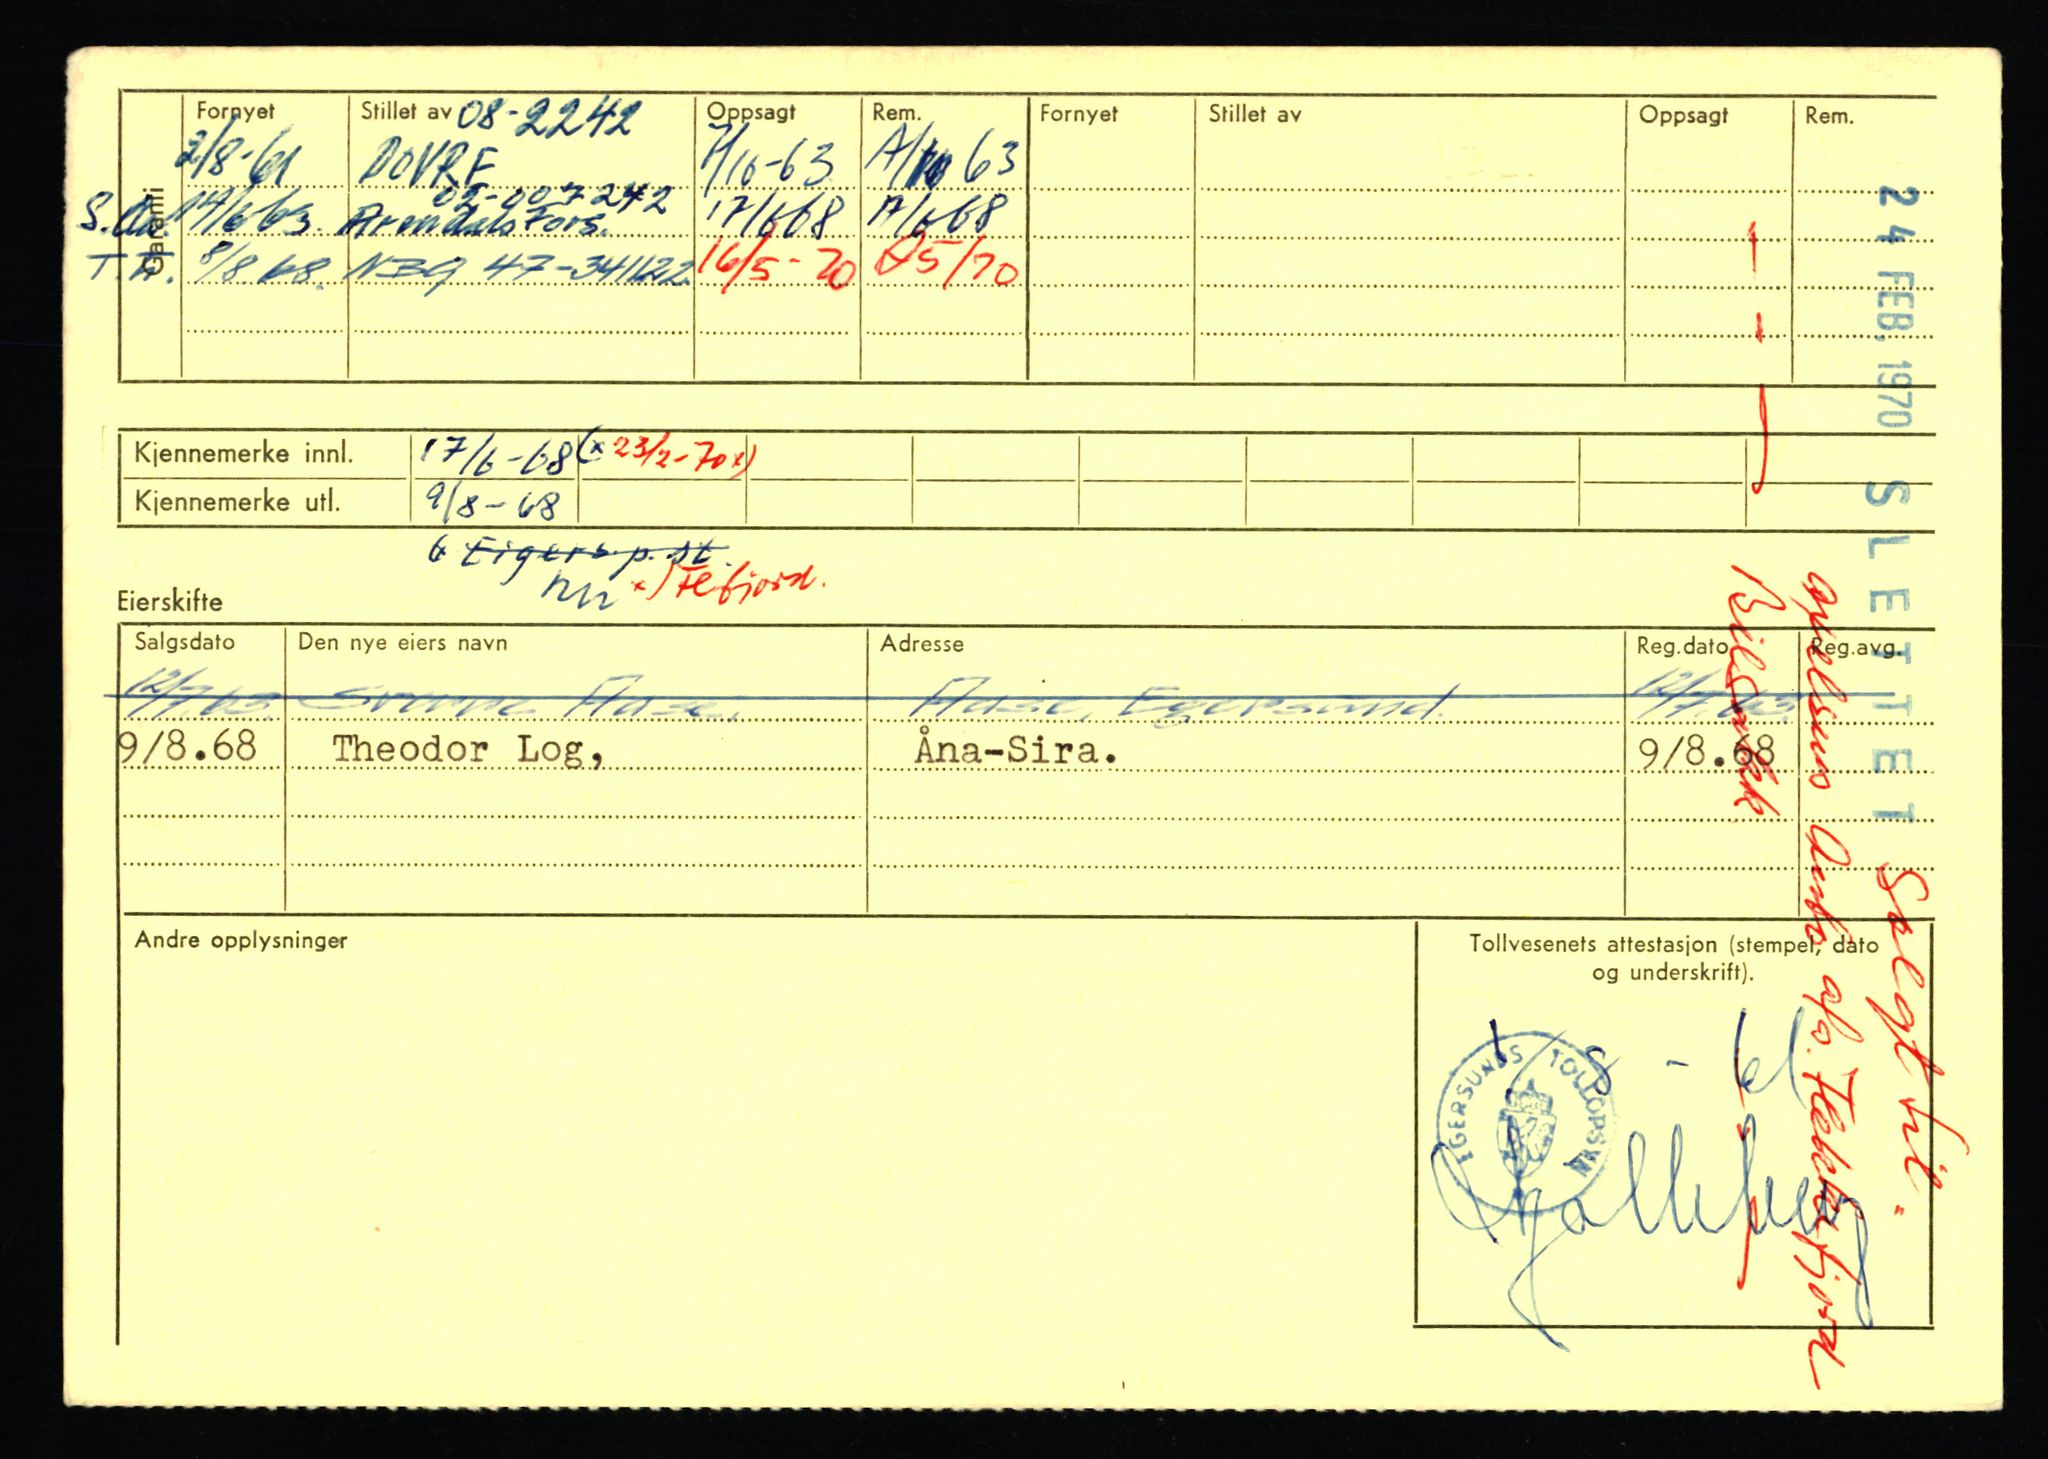 Garanti
Fornyet Stillet av 08-2242 Oppsagt Rem. Fornyet Stillet av Oppsagt Rem.
2/8-61 DOVRE 7/10-63 63
14/6 63. Arendals Fors. 05-007242 17/6 68 17/6 68
T.A. 8/8.68. 47-341122 16/5-70 25/70
Kjennemerke innl. 17/6-68 (x 23/2-70 x)
Kjennemerke utl. 9/8-68
Eigers.p.st.
x) Flekkefjord.
Eierskifte
Salgsdato Den nye eiers navn Adresse Reg.dato Reg.avg.
12/7.63. Sverre Aase, Aase, Egersund. 12/7.63.
9/8.68 Theodor Log, Åna-Sira. 9/8.68
Andre opplysninger
Tollvesenets attestasjon (stempel, dato
og underskrift).
EGERSUNDS TOLLOPSYN
1/8-61
24 FEB. 1970 SLETTET Solgt til "
Auto a/s. Flekkefjord